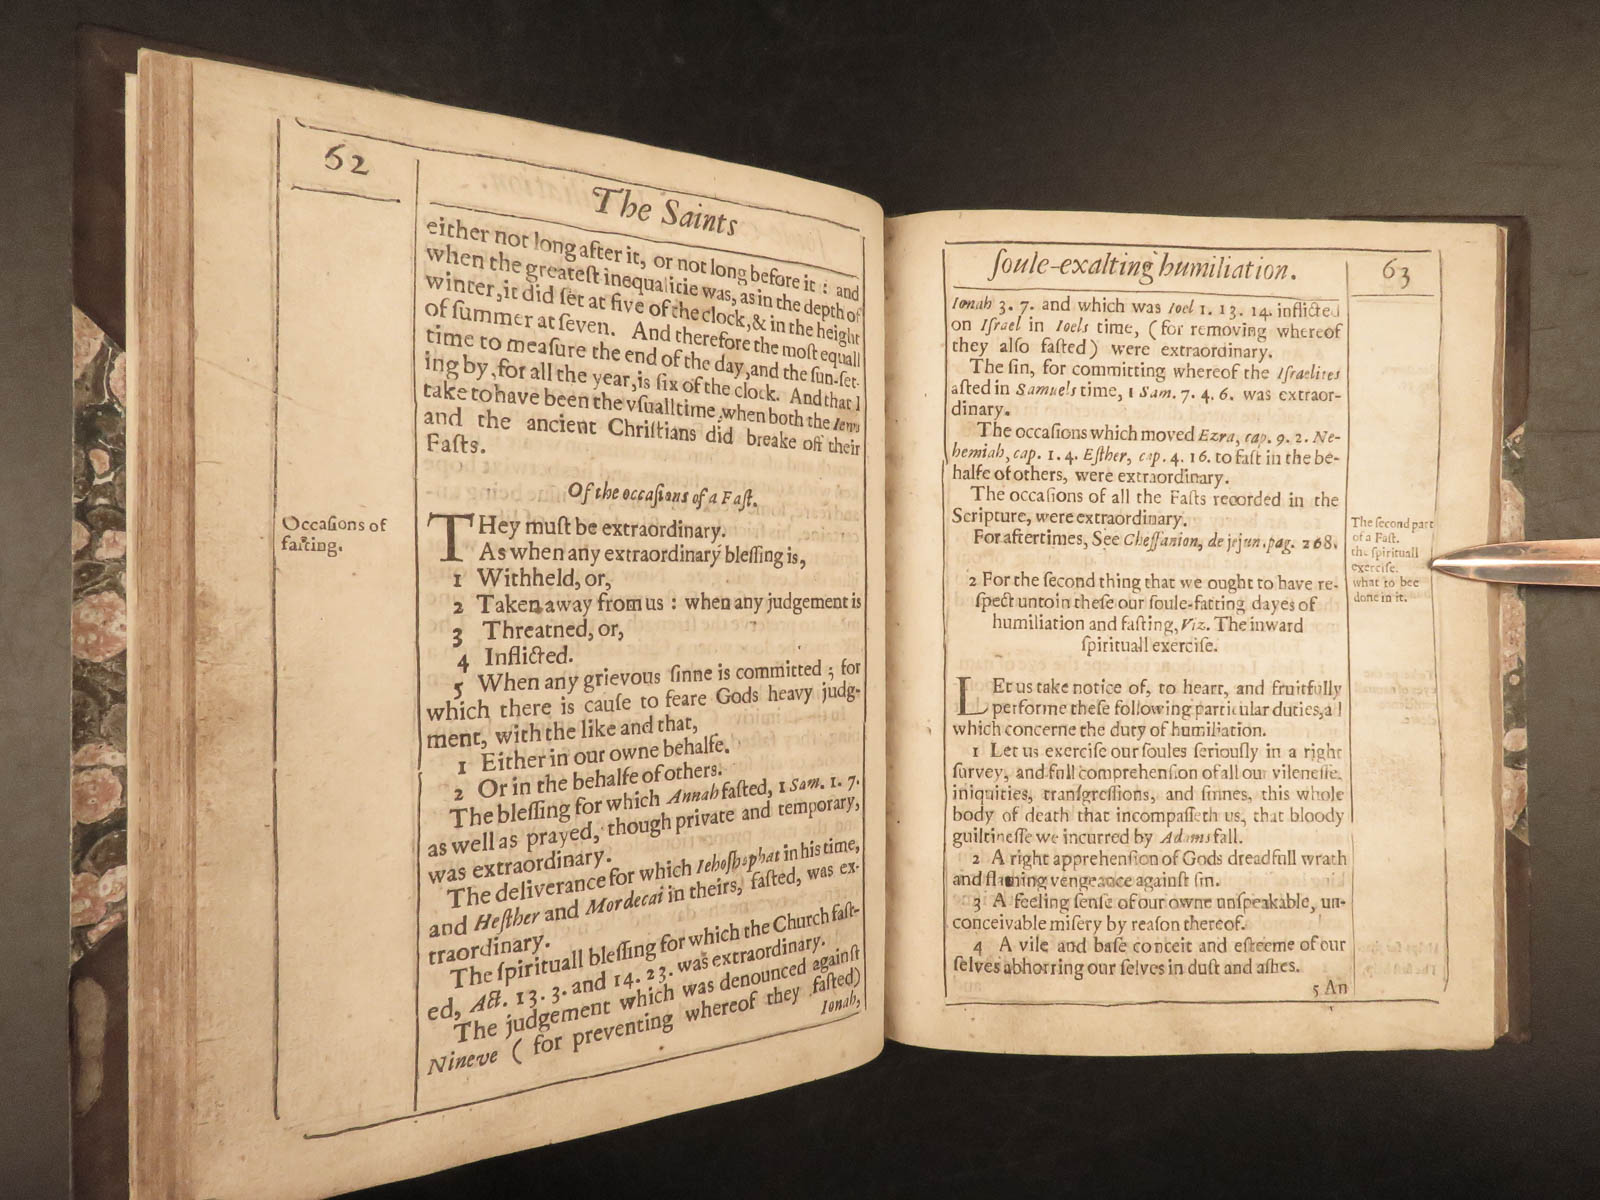 62
The Saints
either not long after it, or not long before it : and
when the greateſt inequalitie was, as in the depth of
winter, it did ſet at five of the clock, & in the height
of ſummer at ſeven. And therefore the moſt equall
time to meaſure the end of the day, and the ſun-ſet-
ing by, for all the year, is ſix of the clock. And that I
take to have been the vſuall time, when both the Iews
and the ancient Chriſtians did breake off their
Faſts.
Of the occaſions of a Faſt.
Occaſions of
faſting.
THey muſt be extraordinary.
As when any extraordinary bleſſing is,
1 Withheld, or,
2 Taken away from us : when any judgement is
3 Threatned, or,
4 Inflicted.
5 When any grievous ſinne is committed ; for
which there is cauſe to feare Gods heavy judg-
ment, with the like and that,
1 Either in our owne behalfe.
2 Or in the behalfe of others.
The bleſſing for which Annah faſted, 1 Sam. 1. 7.
as well as prayed, though private and temporary,
was extraordinary.
The deliverance for which Iehoſhophat in his time,
and Heſther and Mordecai in theirs, faſted, was ex-
traordinary.
The ſpirituall bleſſing for which the Church faſt-
ed, Act. 13. 3. and 14. 23. was extraordinary.
The judgement which was denounced againſt
Nineve ( for preventing whereof they faſted)
Ionah,
ſoule-exalting humiliation.
63
Ionah 3. 7. and which was Ioel 1. 13. 14. inflicted
on Iſrael in Ioels time, (for removing whereof
they alſo faſted) were extraordinary.
The ſin, for committing whereof the Iſraelites
aſted in Samuels time, 1 Sam. 7. 4. 6. was extraor-
dinary.
The occaſions which moved Ezra, cap. 9. 2. Ne-
hemiah, cap. 1. 4. Eſther, cap. 4. 16. to faſt in the be-
halfe of others, were extraordinary.
The occaſions of all the Faſts recorded in the
Scripture, were extraordinary.
For aftertimes, See Cheſſanion, de jejun. pag. 268.
The ſecond part
of a Faſt.
the ſpirituall
exerciſe.
what to bee
done in it.
2 For the ſecond thing that we ought to have re-
ſpect unto in theſe our ſoule-fatting dayes of
humiliation and faſting, Viz. The inward
ſpirituall exerciſe.
LEt us take notice of, to heart, and fruitfully
performe theſe following particular duties, all
which concerne the duty of humiliation.
1 Let us exerciſe our ſoules ſeriouſly in a right
ſurvey, and full comprehenſion of all our vileneſſe,
iniquities, tranſgreſſions, and ſinnes, this whole
body of death that incompaſſeth us, that bloody
guiltineſſe we incurred by Adams fall.
2 A right apprehenſion of Gods dreadfull wrath
and flaming vengeance againſt ſin.
3 A feeling ſenſe of our owne unſpeakable, un-
conceivable miſery by reaſon thereof.
4 A vile and baſe conceit and eſteeme of our
ſelves abhorring our ſelves in duſt and aſhes.
5 An